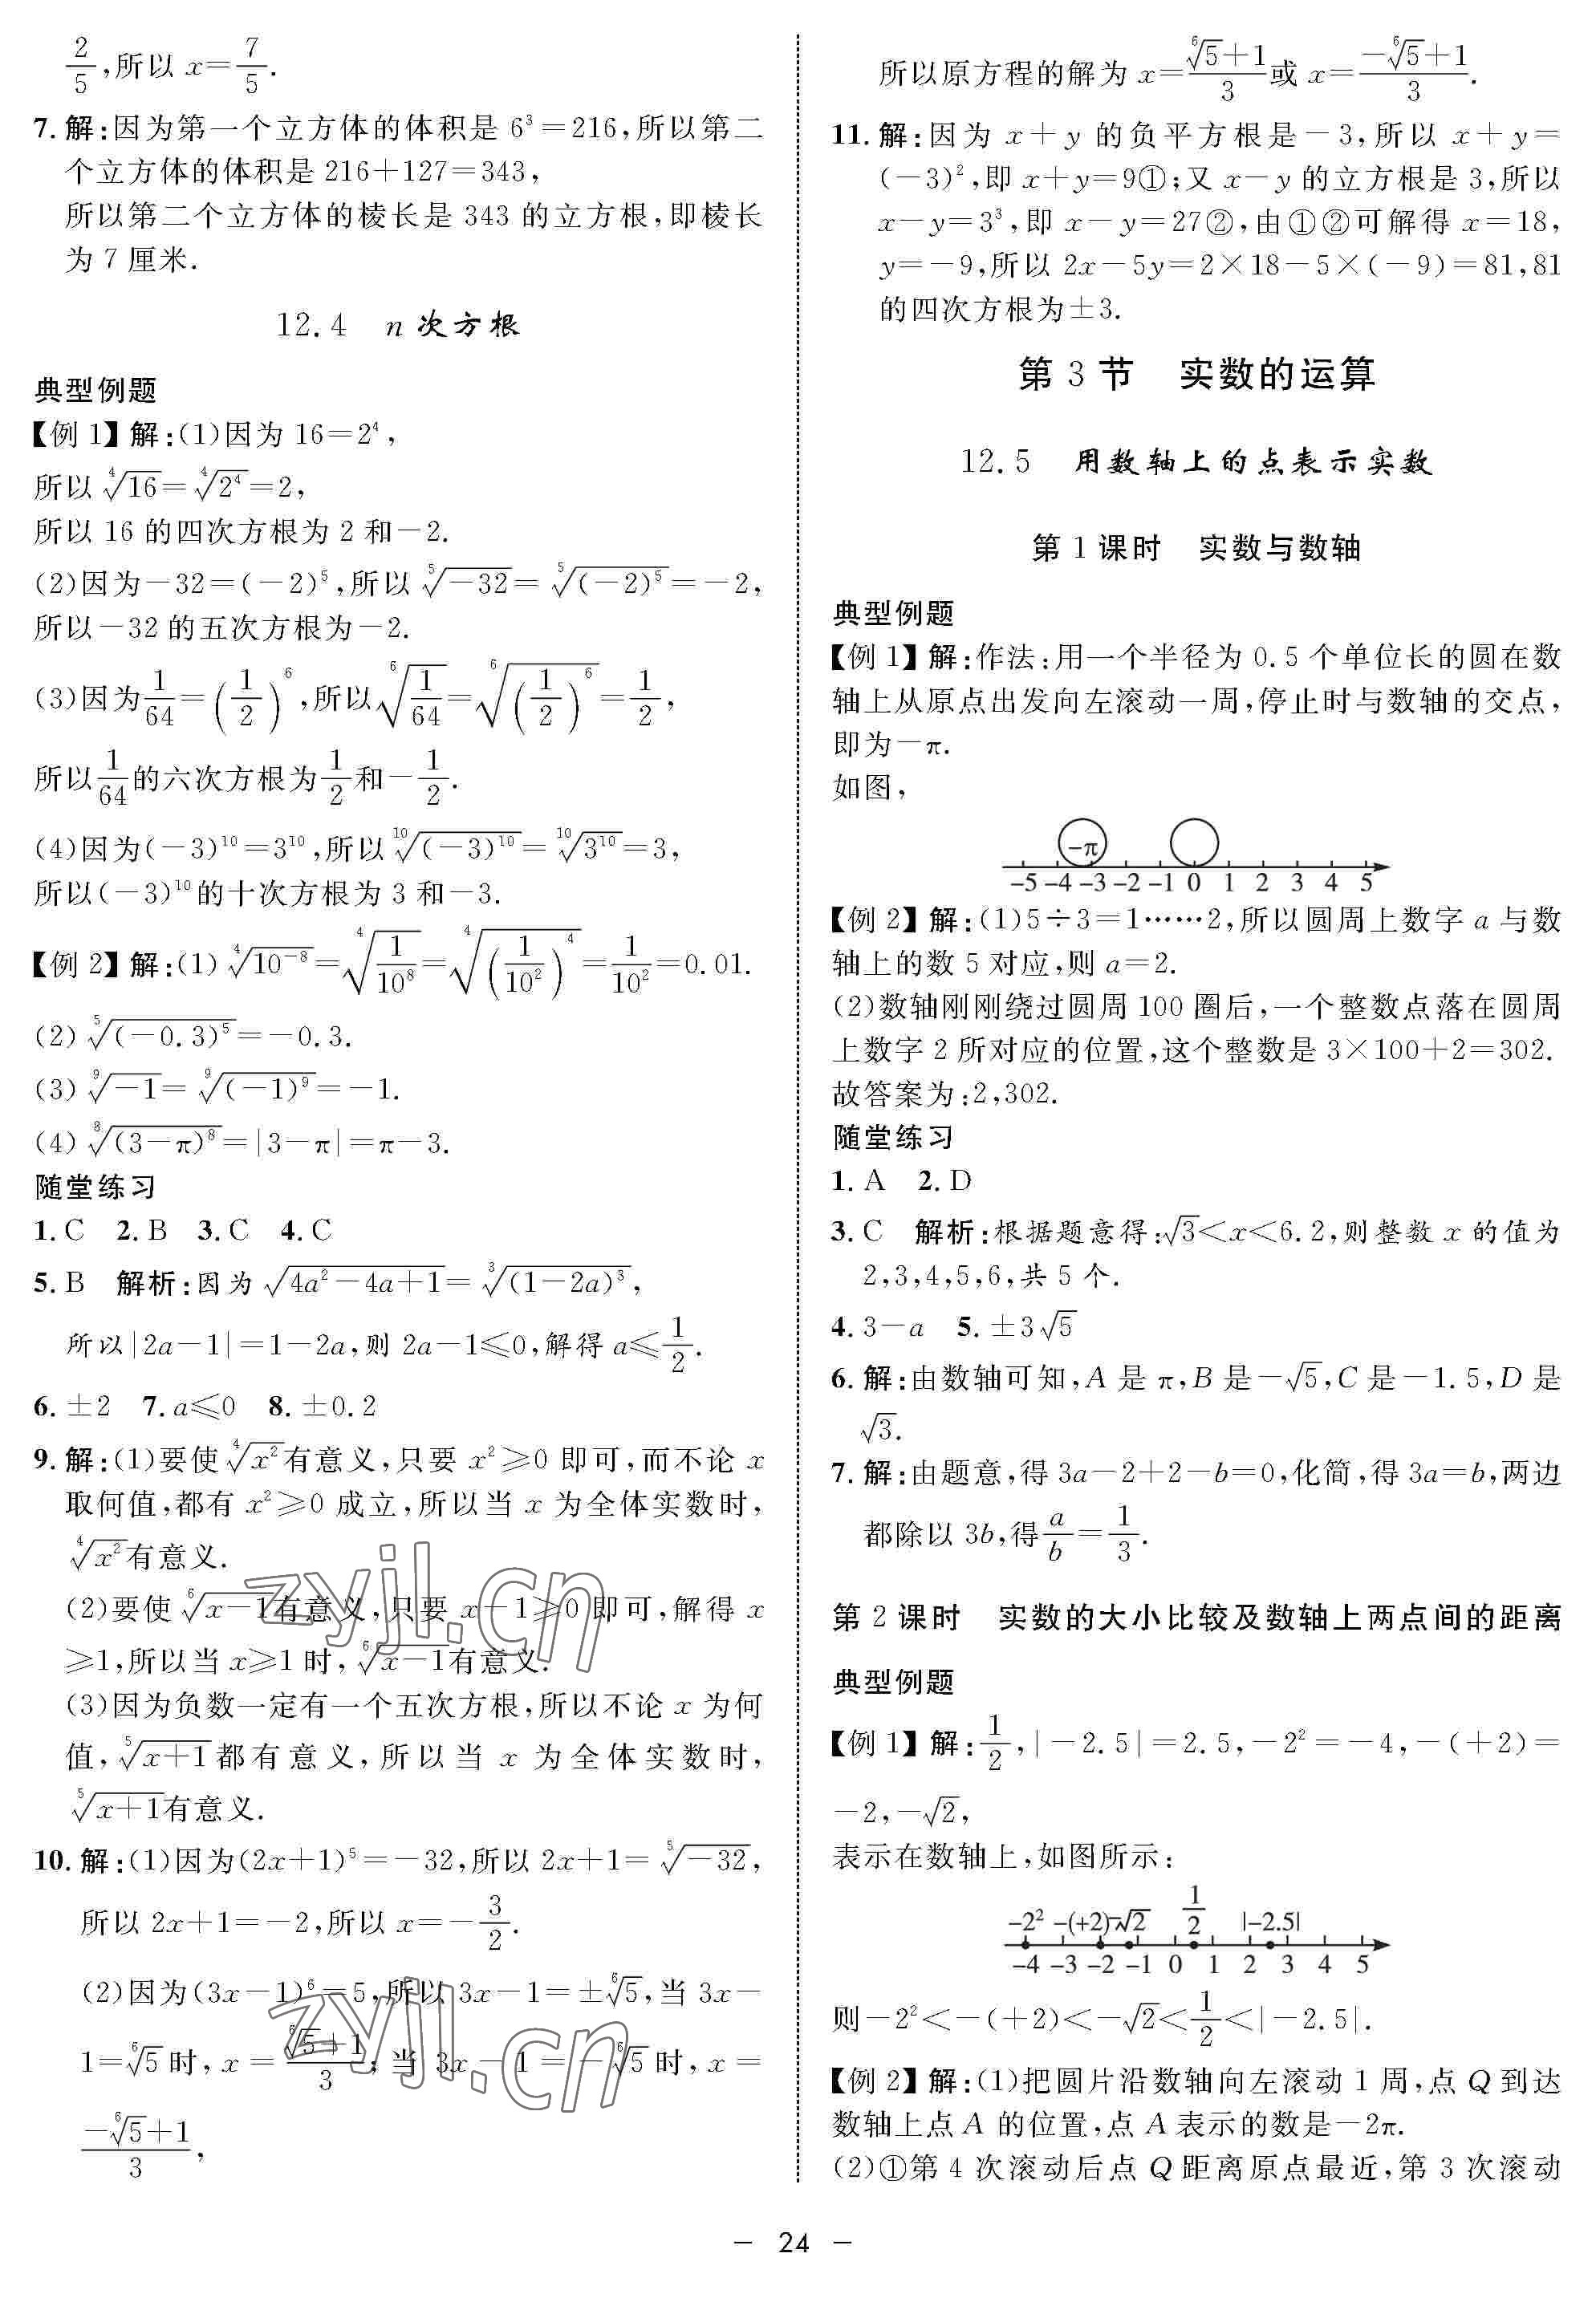 2/5,所以 x=7/5.
7.解:因为第一个立方体的体积是 6³=216,所以第二
个立方体的体积是 216+127=343,
所以第二个立方体的棱长是 343 的立方根,即棱长
为 7 厘米.
12.4 n 次方根
典型例题
【例 1】解:(1)因为 16=2⁴,
所以 ⁴√16=⁴√(2⁴)=2,
所以 16 的四次方根为 2 和-2.
(2)因为-32=(-2)⁵,所以 ⁵√(-32)=⁵√((-2)⁵)=-2,
所以-32 的五次方根为-2.
(3)因为1/64=(1/2)⁶,所以⁶√(1/64)=⁶√((1/2)⁶)=1/2,
所以1/64的六次方根为1/2和-1/2.
(4)因为(-3)¹⁰=3¹⁰,所以 ¹⁰√((-3)¹⁰)=¹⁰√(3¹⁰)=3,
所以(-3)¹⁰的十次方根为 3 和-3.
【例 2】解:(1) ⁴√(10⁻⁸)=⁴√(1/10⁸)=⁴√((1/10²)⁴)=1/10²=0.01.
(2) ⁵√((-0.3)⁵)=-0.3.
(3) ⁹√(-1)=⁹√((-1)⁹)=-1.
(4) ⁸√((3-π)⁸)=|3-π|=π-3.
随堂练习
1.C 2.B 3.C 4.C
5.B 解析:因为 √(4a²-4a+1)=³√((1-2a)³),
所以|2a-1|=1-2a,则 2a-1≤0,解得 a≤1/2.
6.±2 7.a≤0 8.±0.2
9.解:(1)要使 ⁴√(x²)有意义,只要 x²≥0 即可,而不论 x
取何值,都有 x²≥0 成立,所以当 x 为全体实数时,
⁴√(x²)有意义.
(2)要使 ⁶√(x-1)有意义,只要 x-1≥0 即可,解得 x
≥1,所以当 x≥1 时,⁶√(x-1)有意义.
(3)因为负数一定有一个五次方根,所以不论 x 为何
值,⁵√(x+1)都有意义,所以当 x 为全体实数时,
⁵√(x+1)有意义.
10.解:(1)因为(2x+1)⁵=-32,所以 2x+1=⁵√(-32),
所以 2x+1=-2,所以 x=-3/2.
(2)因为(3x-1)⁶=5,所以 3x-1=±⁶√5,当 3x-
1=⁶√5 时,x=(⁶√5+1)/3;当 3x-1=-⁶√5 时,x=
(-⁶√5+1)/3,
所以原方程的解为 x=(⁶√5+1)/3或 x=(-⁶√5+1)/3.
11.解:因为 x+y 的负平方根是-3,所以 x+y=
(-3)²,即 x+y=9①;又 x-y 的立方根是 3,所以
x-y=3³,即 x-y=27②,由①②可解得 x=18,
y=-9,所以 2x-5y=2×18-5×(-9)=81,81
的四次方根为±3.
第 3 节 实数的运算
12.5 用数轴上的点表示实数
第 1 课时 实数与数轴
典型例题
【例 1】解:作法:用一个半径为 0.5 个单位长的圆在数
轴上从原点出发向左滚动一周,停止时与数轴的交点,
即为-π.
如图,
-π
-5 -4 -3 -2 -1 0 1 2 3 4 5
【例 2】解:(1)5÷3=1……2,所以圆周上数字 a 与数
轴上的数 5 对应,则 a=2.
(2)数轴刚刚绕过圆周 100 圈后,一个整数点落在圆周
上数字 2 所对应的位置,这个整数是 3×100+2=302.
故答案为:2,302.
随堂练习
1.A 2.D
3.C 解析:根据题意得:√3<x<6.2,则整数 x 的值为
2,3,4,5,6,共 5 个.
4.3-a 5.±3√5
6.解:由数轴可知,A 是 π,B 是-√5,C 是-1.5,D 是
√3.
7.解:由题意,得 3a-2+2-b=0,化简,得 3a=b,两边
都除以 3b,得a/b=1/3.
第 2 课时 实数的大小比较及数轴上两点间的距离
典型例题
【例 1】解:1/2,|-2.5|=2.5,-2²=-4,-(+2)=
-2,-√2,
表示在数轴上,如图所示:
-2² -(+2) -√2 1/2 |-2.5|
-4 -3 -2 -1 0 1 2 3 4 5
则-2²<-(+2)<-√2<1/2<|-2.5|.
【例 2】解:(1)把圆片沿数轴向左滚动 1 周,点 Q 到达
数轴上点 A 的位置,点 A 表示的数是-2π.
(2)①第 4 次滚动后点 Q 距离原点最近,第 3 次滚动
- 24 -
zyjl.cn
zyjl.cn